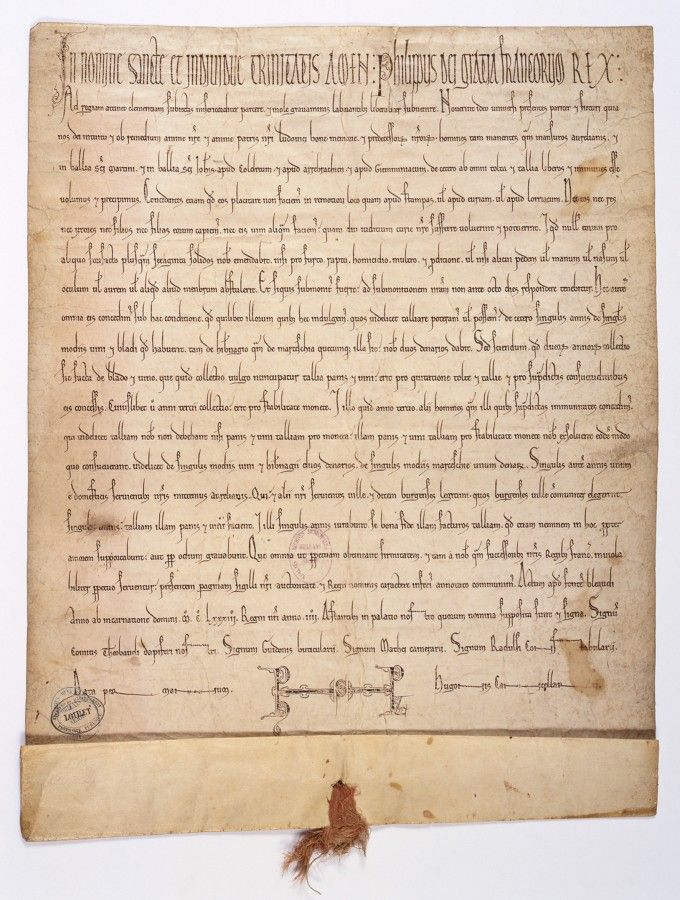 In nomine sancte et individue trinitatis amen : Philippus dei gratia francorum REX :.
Ad regiam attinet clementiam subiectis misericorditer parcere, et mole gravaminis laborantibus liberaliter subvenire. Noverint ideo universi presentes pariter et futuri quia
nos dei intuitu et ob remedium anime nre et anime patris nri Ludovici bone memorie, et predecessorum nrorum, homines tam manentes quam mansuros aurelianis, et
in ballia sci martini, et in ballia sci Iohis, apud et apud et apud de cetero ab omni tolta et tallia liberos et immunes esse
volumus et precipimus. Concedentes etiam qd eos placitare non faciem in remotiori loco quam apud stampas, vl apud evriam, vl apud lorriacum. Nec eos nec res
nec uxores nec filios nec filias eorum capiem, nec eis vim aliqm faciem: quam diu iudicium curie nre sufferre voluerint et potuerint. Iqd null eorum pro
aliquo forisfacto plusqm sexaginta solidos nob emendabit, nisi pro furto, raptu, homicidio, multro, et prodicione, vl nisi alicui pedem vl manum vl nasum vl
oculum vl aurem vl aliqd aliud membrum abstulerit. Et siquis submonit fuerit: ad submonitionem nram non ante octo dies respondere tenebitur. Hec autem
omnia eis concedim sub hac conditione, qd quilibet illorum quibus hec indulgem, quos videlicet talliare poteram vl possem: de cetero singulis annis de singulis
modiis vini et bladi qd habuerit, tam de hibnagio qm de marceschia quecumq illa sit: nob duos denarios dabit. Sed sciendum, qd duorum annorum collectio
sic facta de blado et vino, que quidem collectio vulgo nuncupatur tallia panis et vini: erit pro quitatione tolte et tallie et pro supdictis consuetudinibus
eis concessis. Cuiuslibet u anni tercii collectio: erit pro stabilitate monete. Illo quid anno tercio, alii homines qm illi quibus supdictas immunitates concessim,
qui videlicet talliam nob non debebant nisi panis et vini talliam pro moneta: illam panis et vini talliam pro stabilitate monete nob exsolvent eodem modo
quo consueverant, videlicet de singulis modiis vini et hibnagii duos denarios, de singulis modiis marceschie unum denarium. Singulis autem annis unum
e domesticis servientibus nris mittemus aurelianis. Qui et alii nri servientes ville, et decem burgenses legitimi, quos burgenses ville comuniter elegerint
singulis annis: talliam illam panis et vini facient. Illi singulis annis iurabunt se bona fide illam facturos talliam, qd etiam neminem in hoc propter
amorem supportabunt: aut pp odium gravabunt. Que omnia ut ppetuam obtineant firmitatem, et tam a nob qm successoribus nris Regibus francorum inviola
biliter ppetuo serventur: presentem paginam sigilli nri auctoritate et Regii nominis caractere inferius annotato communimus. Actum apud fonte bleaudi
Anno ab incarnatione domini. M. C. Lxxxiii. Regni nri anno .iiii. Astantibus in palatio nostro quorum nomina supposita sunt et signa. Signum
Comitis Theobaudi dapiferi nostri. Signum Guidonis buticularii. Signum Mathei camerarii. Signum Radulfi Constabularii.
Data per manum Hugonis Cancellarii.
LOIRET